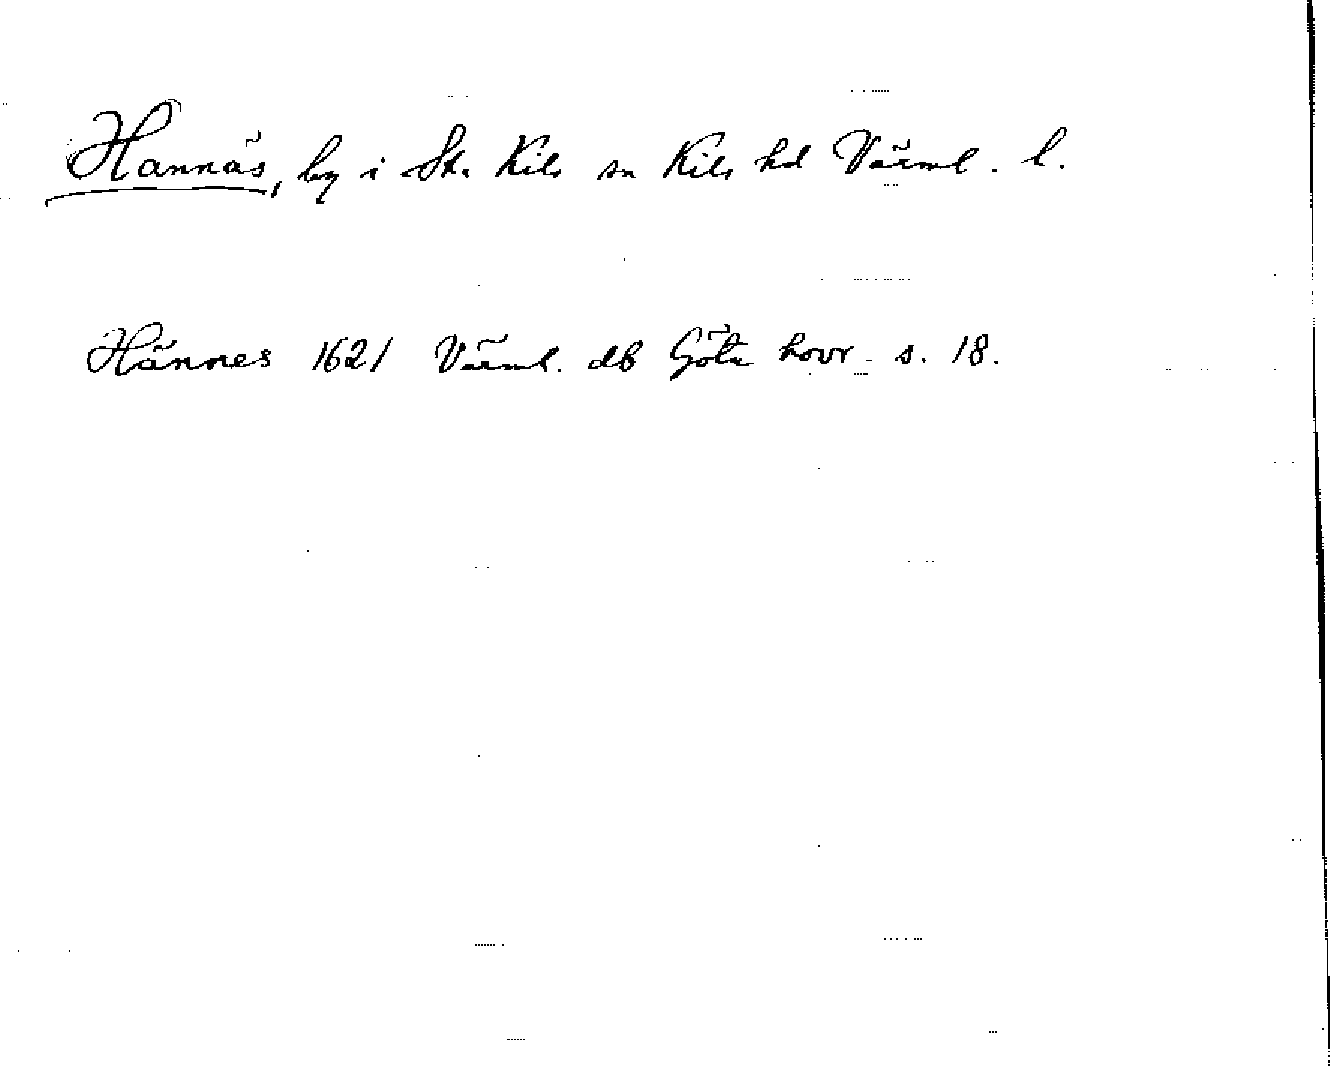 Hannäs, by i St. Kils sn Kils hd Värml. l.
Hännes 1621 Värml. db Göta hovr. s. 18.